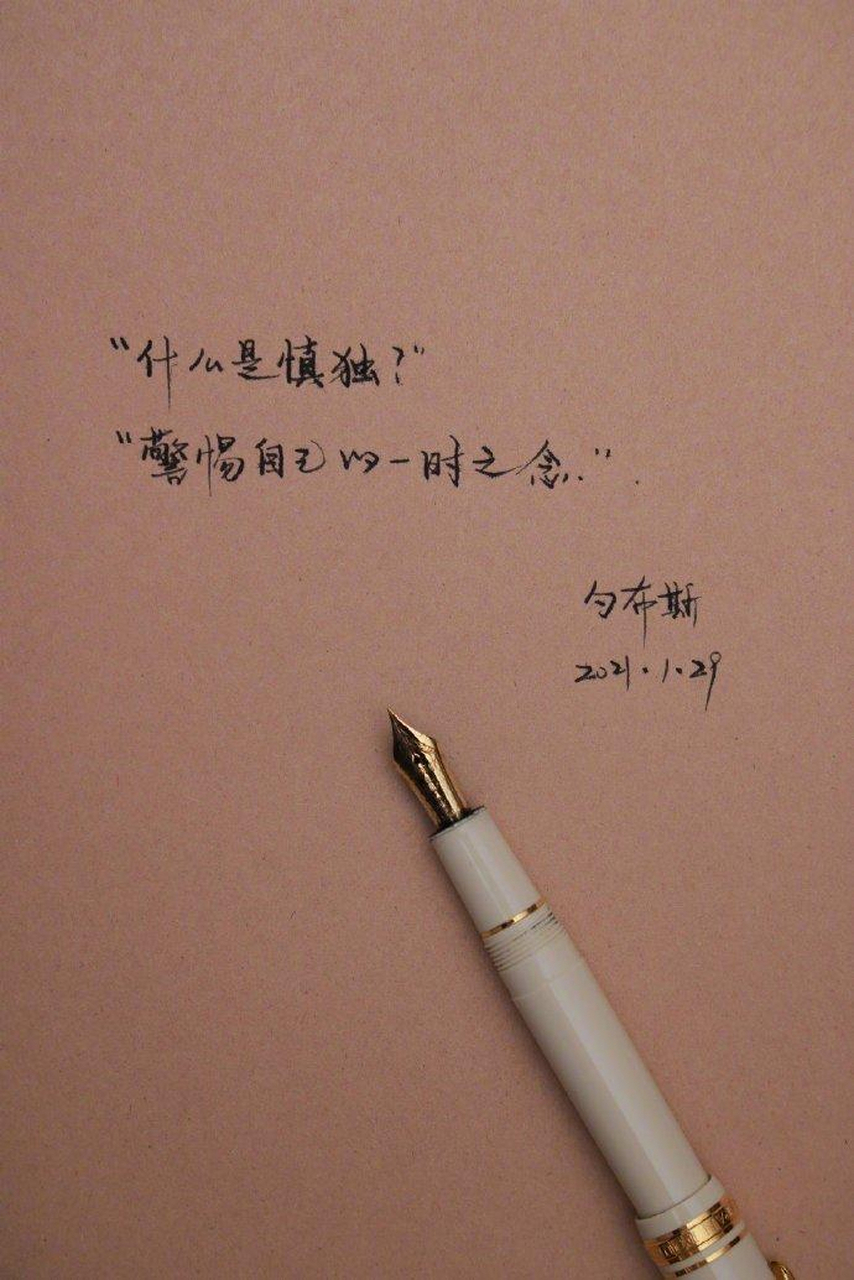 “什么是慎独？”
“警惕自己的一时之念.”.
勺布斯
2021.1.29